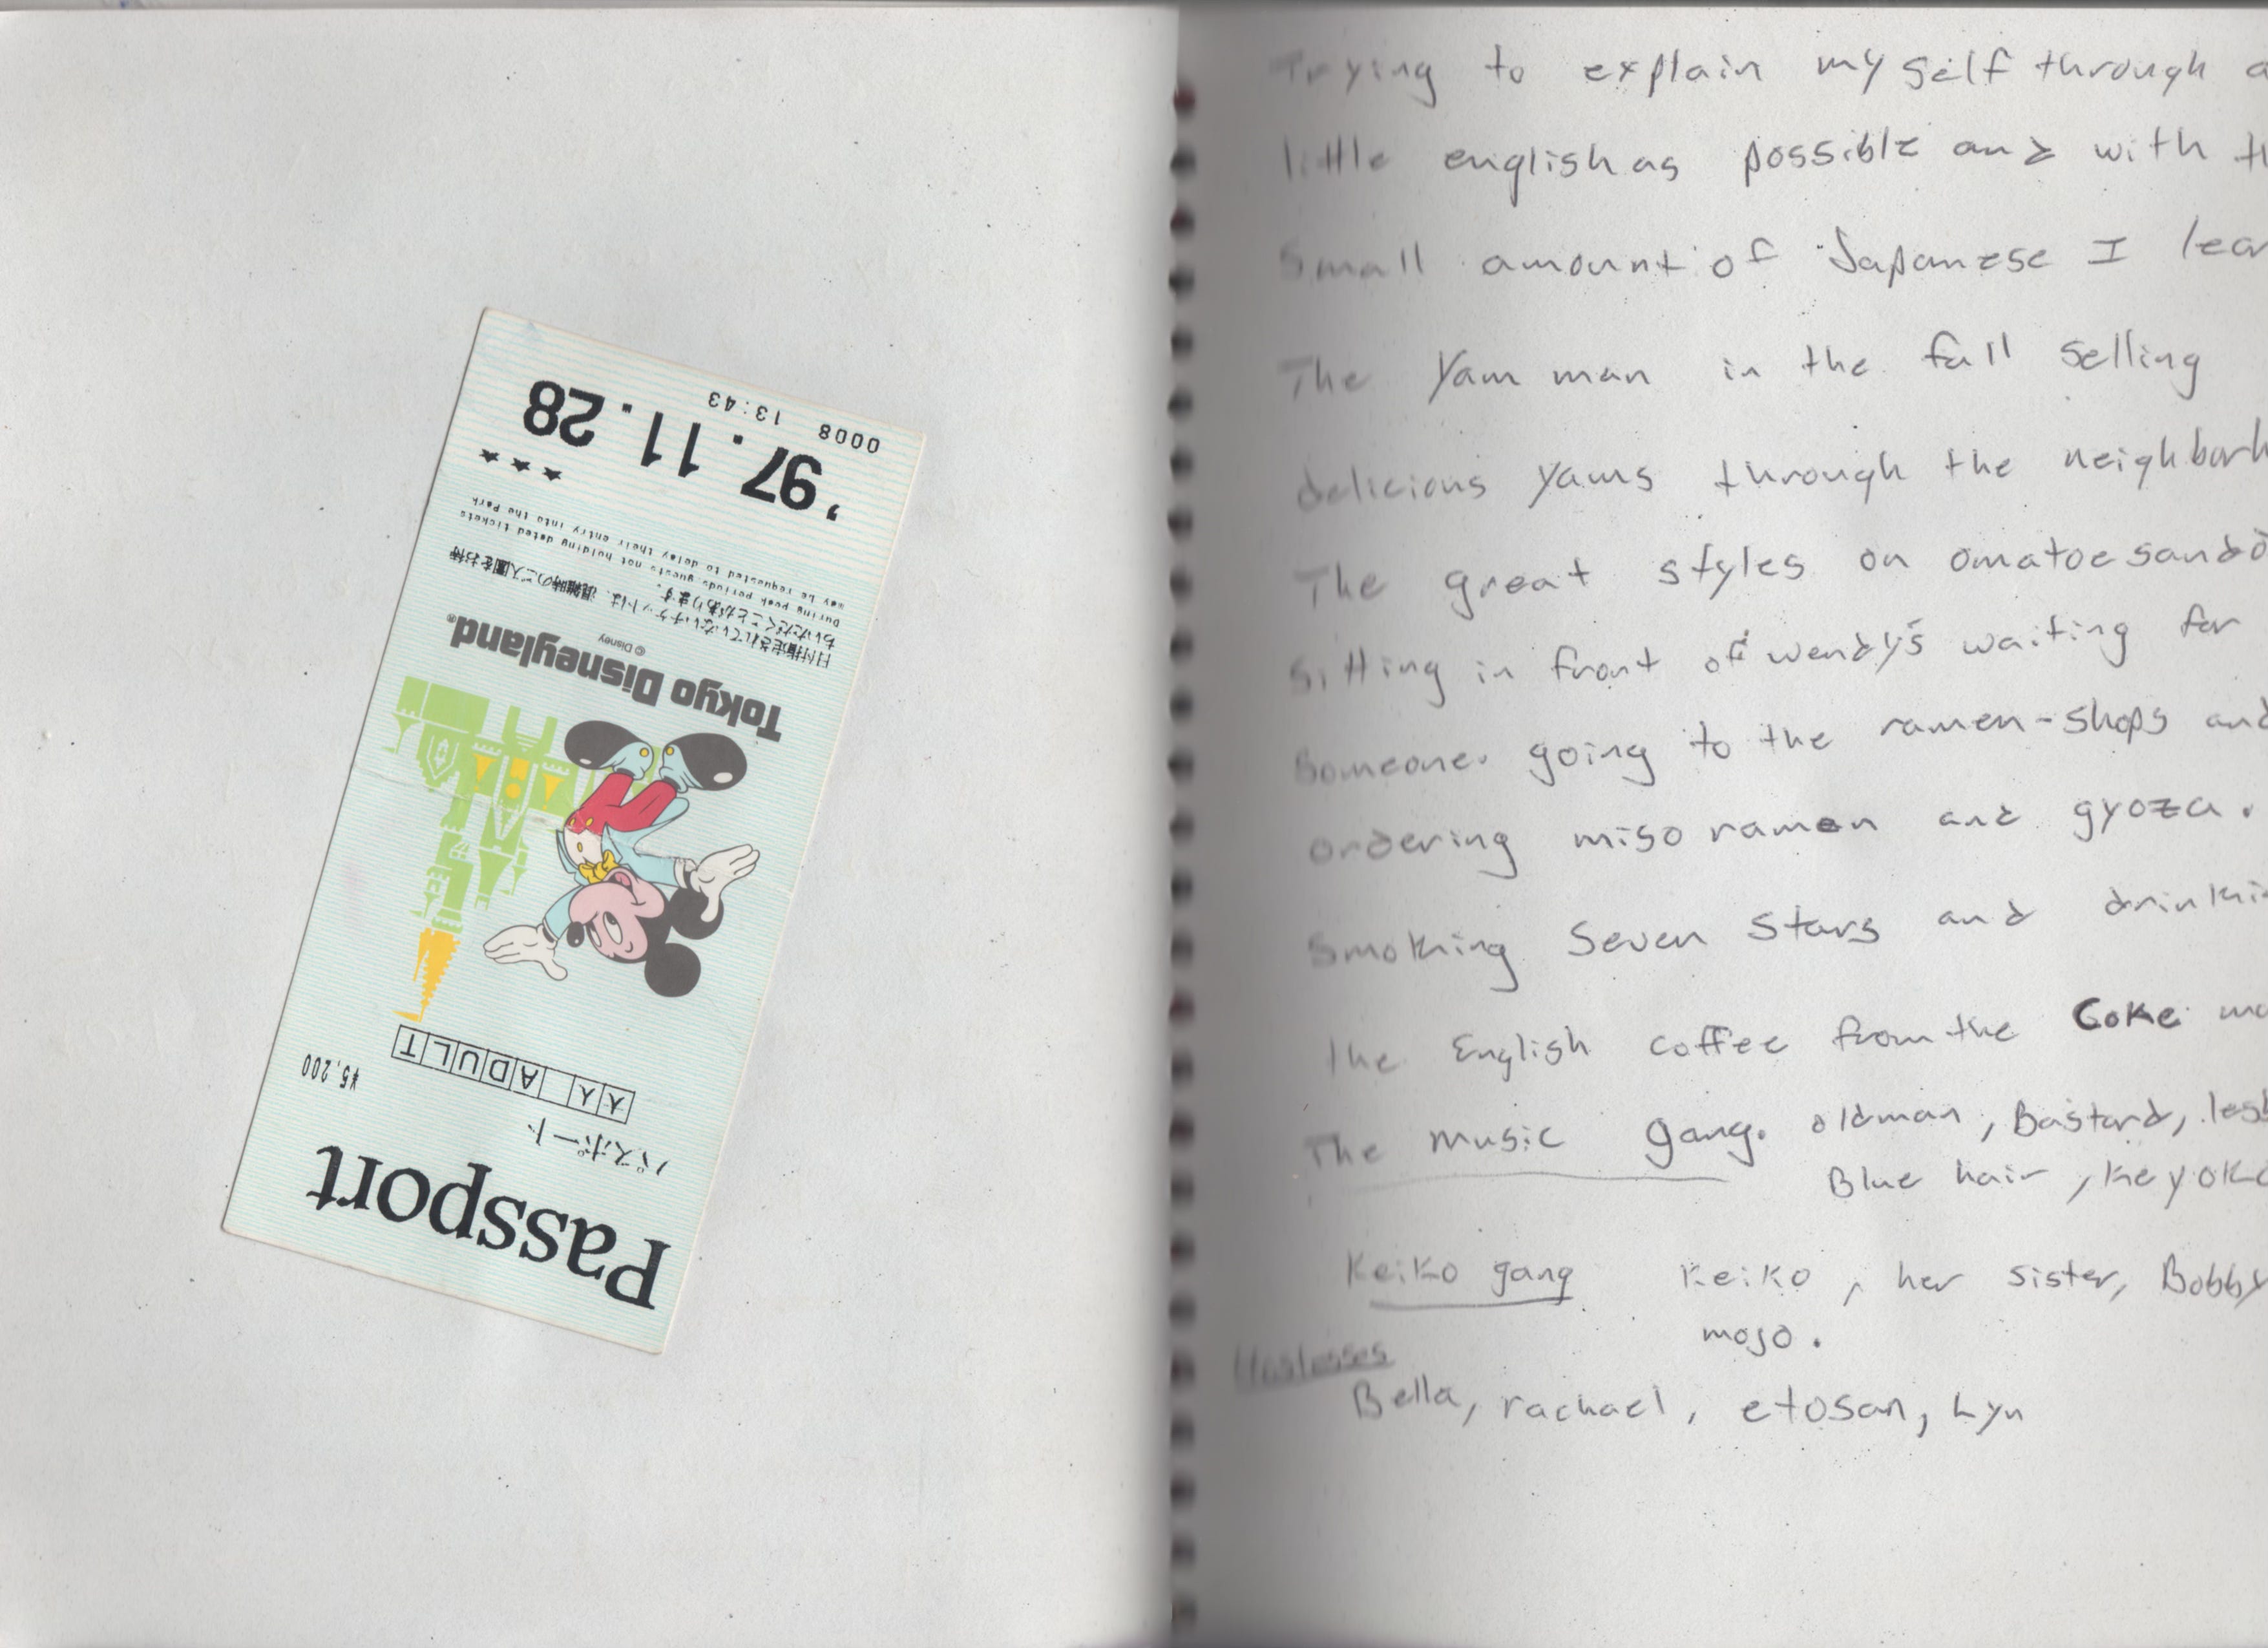 Passport
パスポート
大人 ADULT
¥5,200
Tokyo Disneyland®
© Disney
日付指定されていないチケットは、混雑時のご入園をお待
ちいただくことがあります。
During peak periods guests not holding dated tickets
may be requested to delay their entry into the Park
★★★
'97.11.28
0008 13:43
Trying to explain my self through a
little english as possible and with th
Small amount of Japanese I lear
The Yam man in the fall selling
delicious yams through the neighborh
The great styles on omatoesando
Sitting in front of wendy's waiting for
Someone. going to the ramen-shops and
ordering miso ramen and gyoza.
Smoking Seven Stars and drinki
the English coffee from the Coke ma
The music gang. oldman, Bastard, lesb
Blue hair, Keyoko
Keiko gang Keiko, her sister, Bobby
mojo.
Hostesses
Bella, rachael, etosan, Lyn